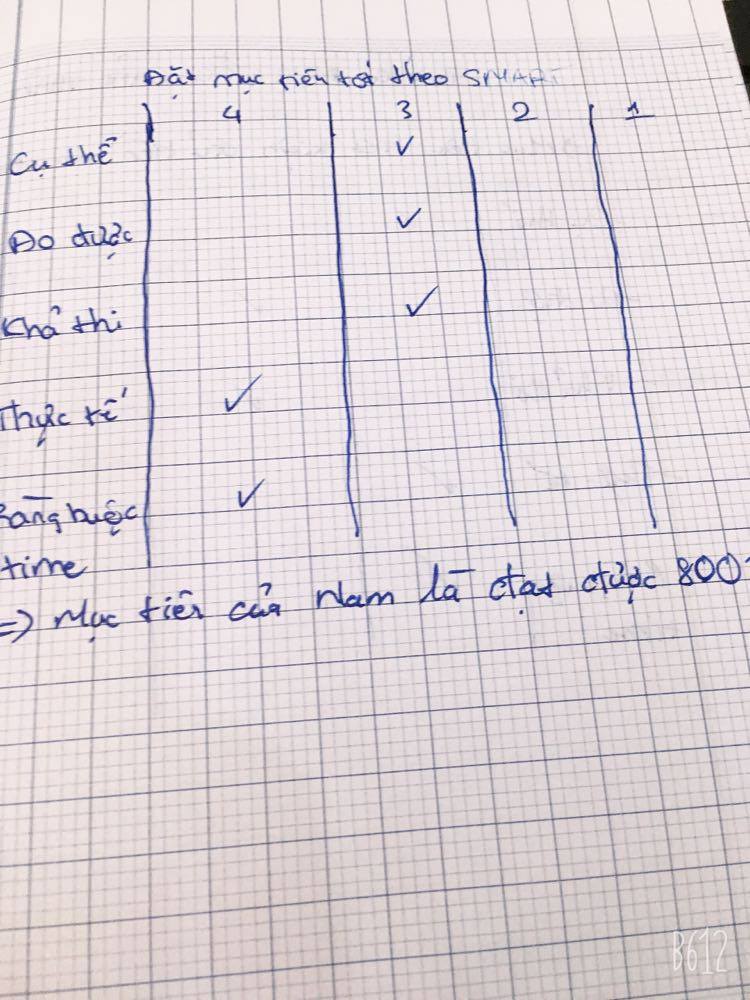 Đặt mục tiêu tốt theo SMART
4 3 2 1
Cụ thể ✓
Đo được ✓
Khả thi ✓
Thực tế ✓
Ràng buộc ✓
time
=> Mục tiêu của Nam là đạt được 800
B612